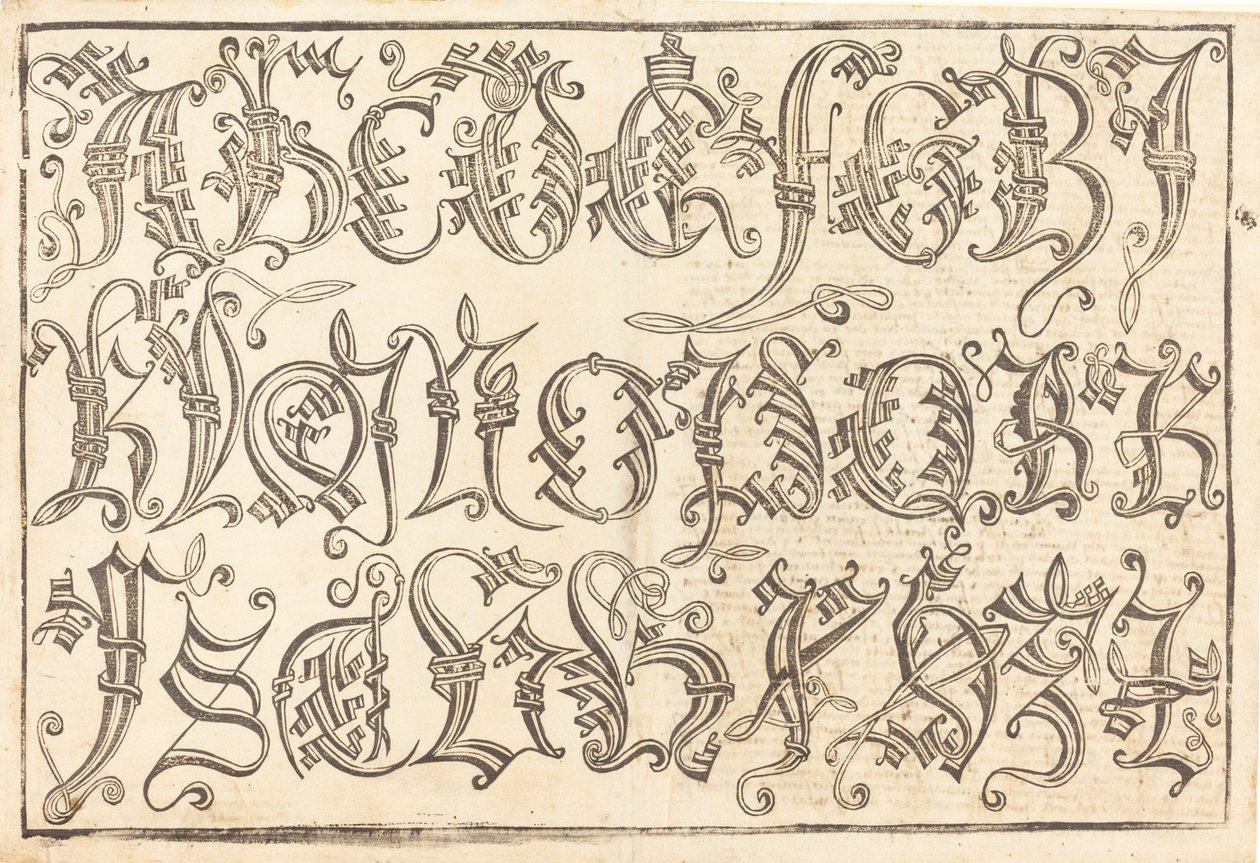 A B C D E F G H I
K L M N O P Q R R
ſ S T V W X Y Z Z